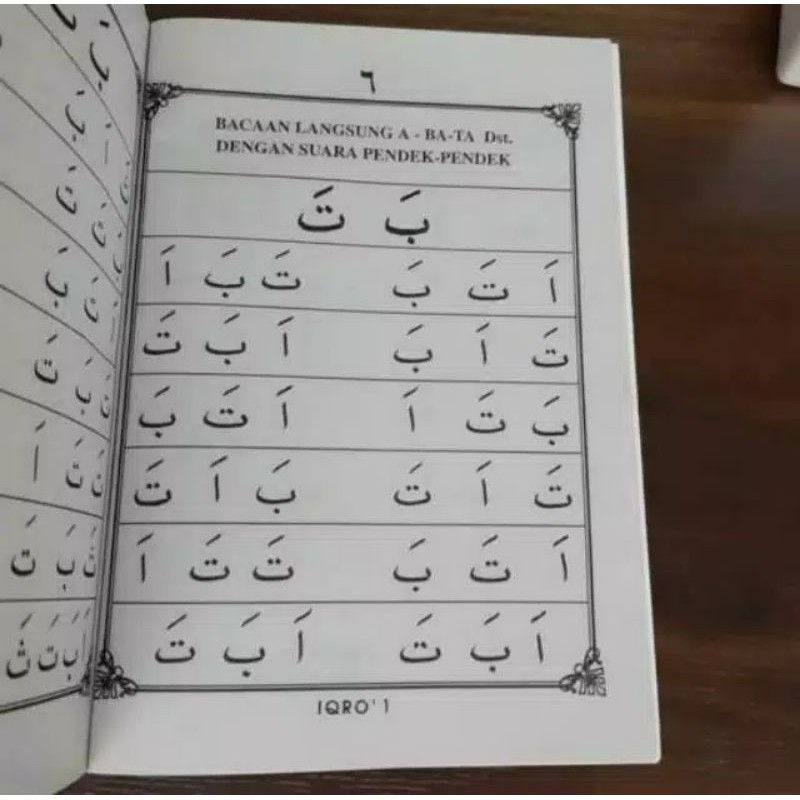 ٦
BACAAN LANGSUNG A - BA-TA Dst.
DENGAN SUARA PENDEK-PENDEK
بَ تَ
اَ تَ بَ تَ بَ اَ
تَ اَ بَ اَ بَ تَ
بَ تَ اَ اَ تَ بَ
تَ اَ تَ بَ اَ تَ
اَ تَ بَ تَ تَ اَ
اَ بَ تَ اَ بَ تَ
IQRO' 1